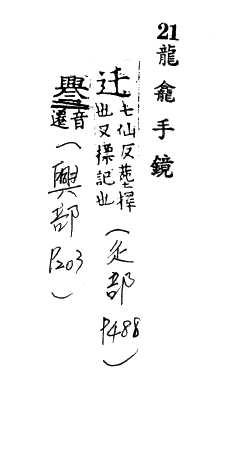 21 龍龕手鏡
迁七仙反蓙擇也又標記也(辵部 P488)
音遷(興部 P203)